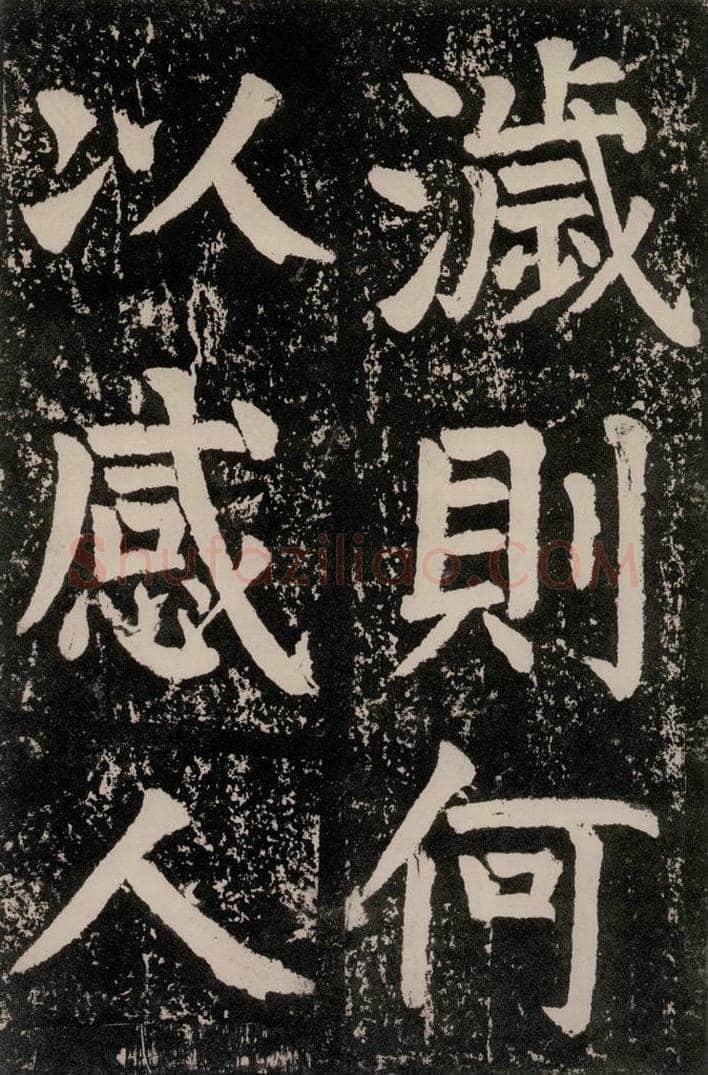 濊則何
以感人
Shufaziliao.COM